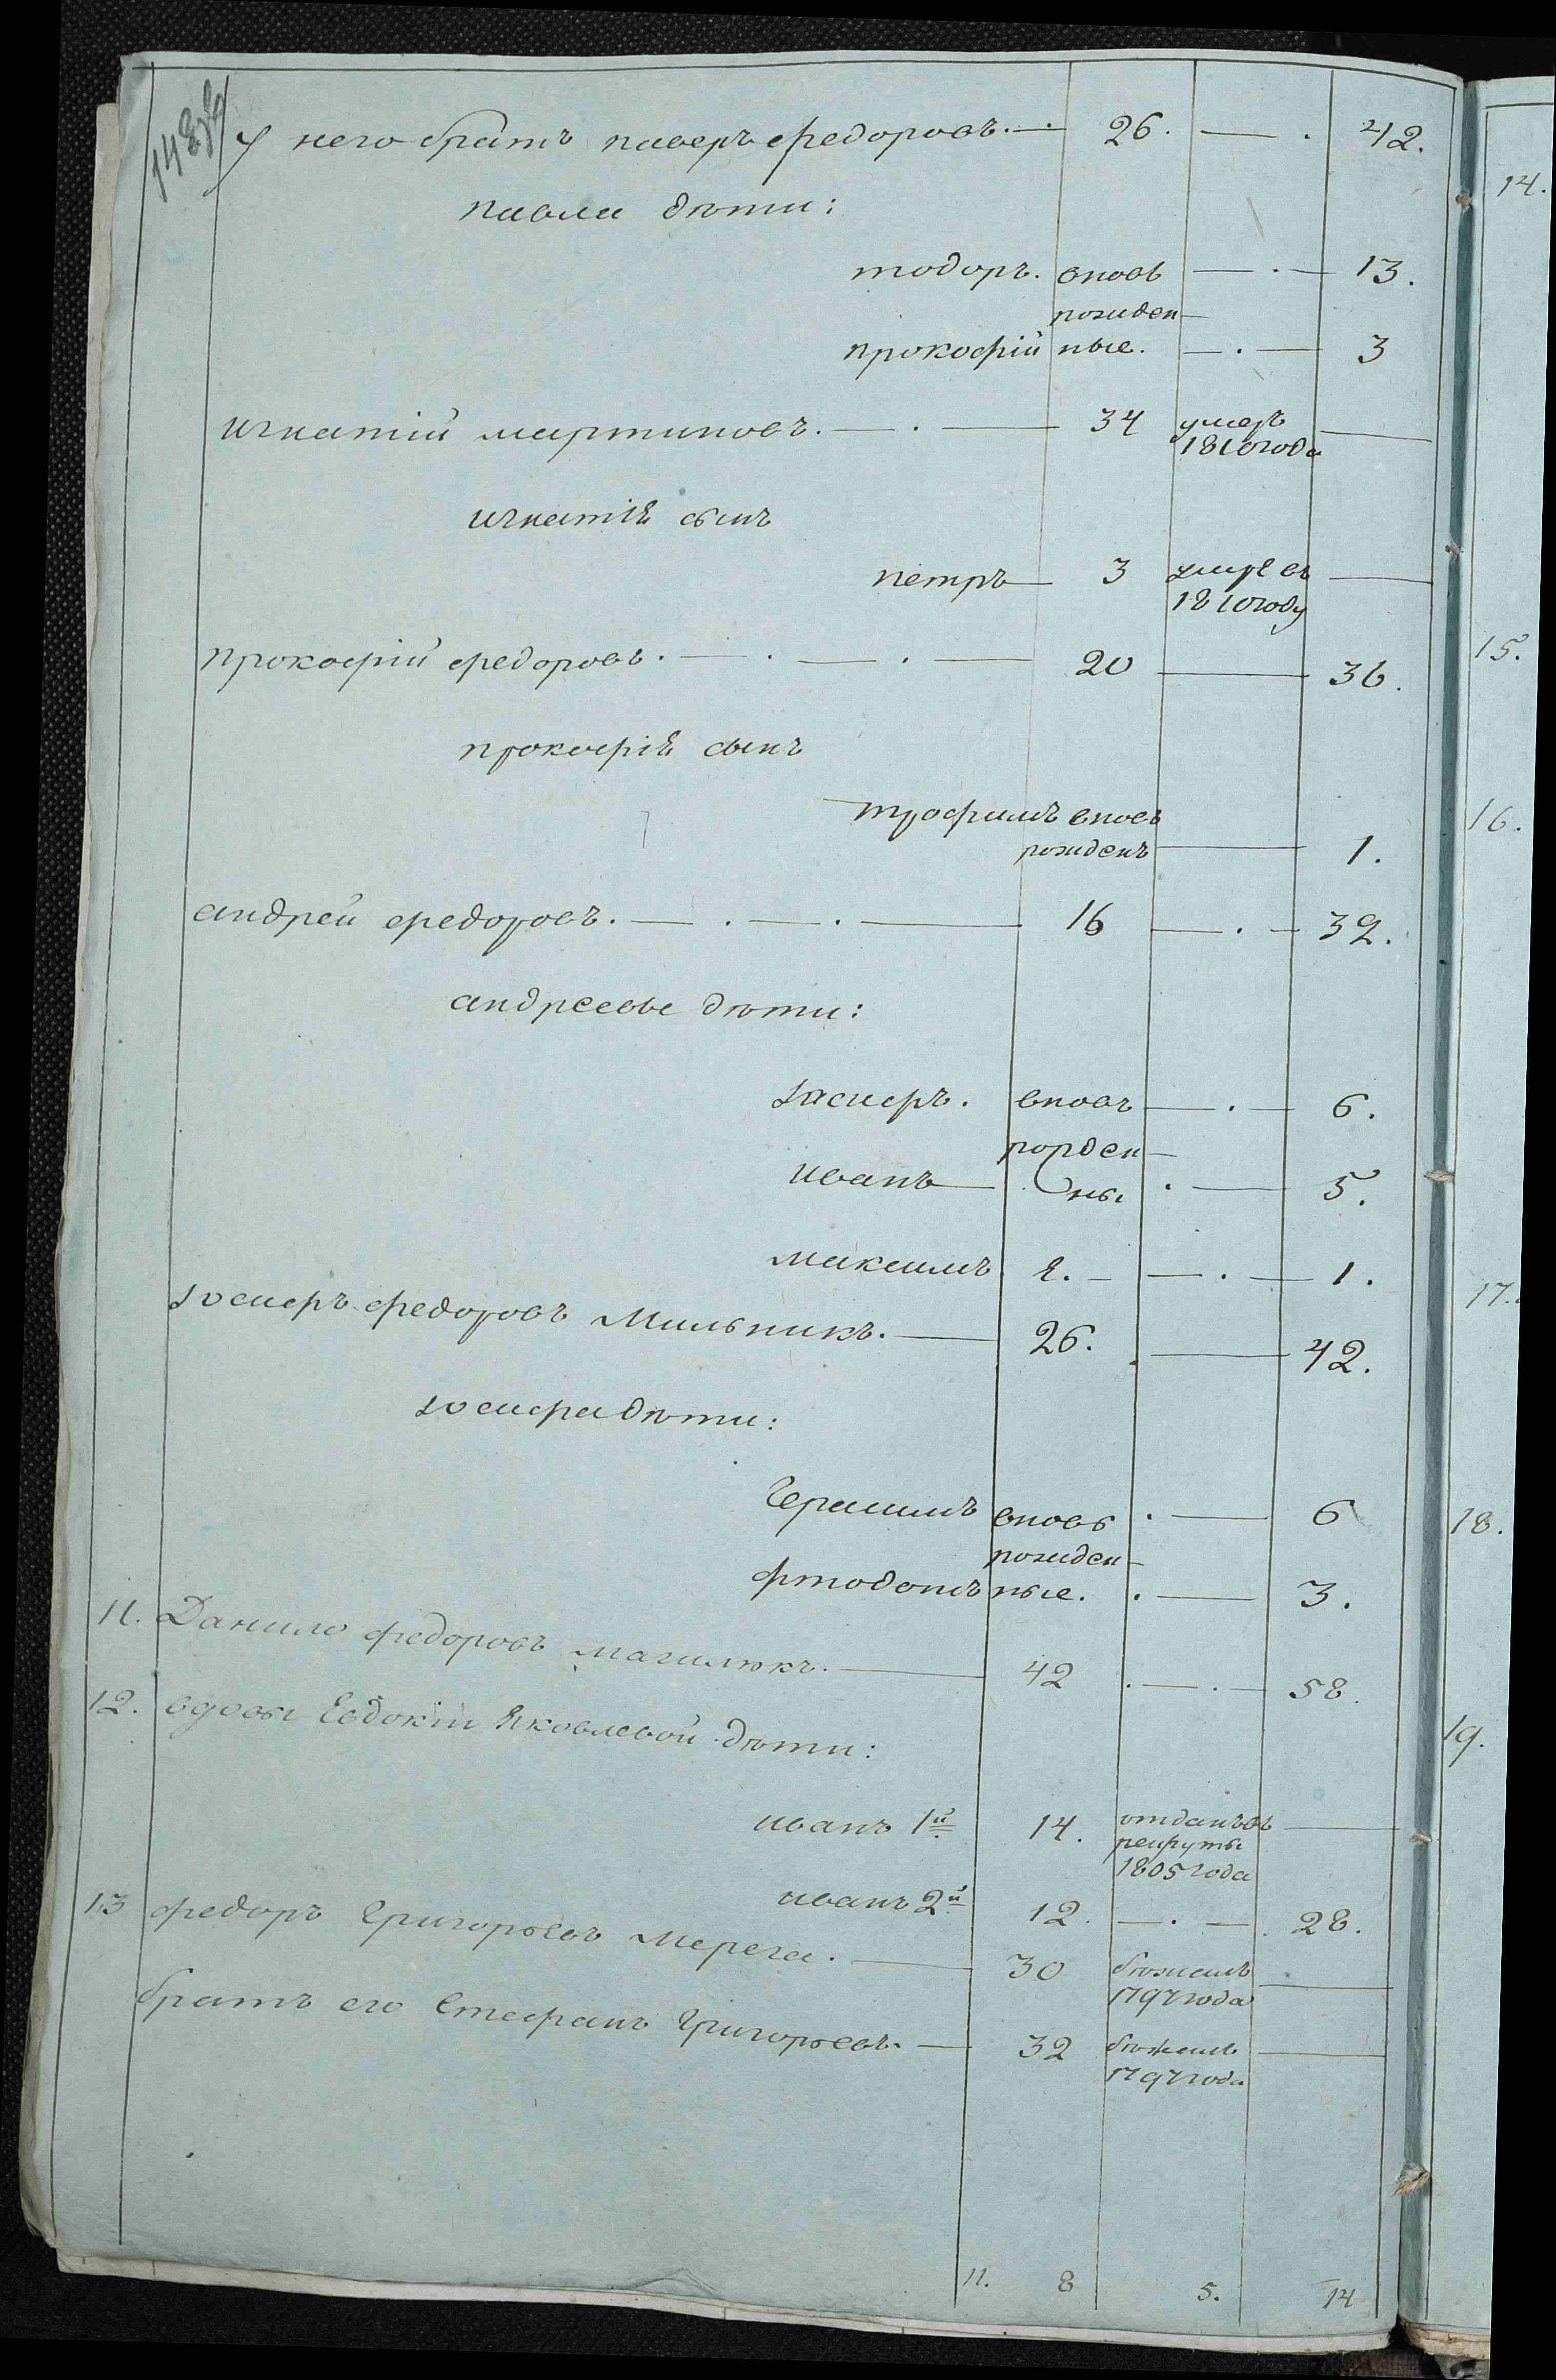 148об
У него братъ павелъ федоровъ. 26. 42.
павла дѣти:
тодоръ. вновь 13.
рожден
прокофій ные. 3
игнатій мартиновъ. 34 умеръ
1810 года
игнатія сынъ
петръ 3 умре въ
1810 году
прокофій федоровъ. 20 36.
прокофія сынъ
трофимъ вновъ
рожденъ 1.
андрей федоровъ. 16 32.
андреевы дѣти:
вновъ 6.
рожден
иванъ ны 5.
максимъ 1.
Іосифъ федоровъ Мильникъ. 26. 42.
Іосифа дѣти:
Герасимъ вновь 6
рожден
ные. 3.
11. Данило федоровъ магилюкъ. 42 58.
12. вдовы Евдокіи Яковлевой дѣти:
иванъ 1й 14. отданъ въ
рекруты
1805 года
иванъ 2й 12. 28.
13 федоръ Григорьевъ Мерега. 30 бѣжалъ
1797 года
братъ его Стефанъ Григорьевъ. 32 бѣжалъ
1797 года
11. 8 5. 14
14.
15.
16.
17.
18.
19.